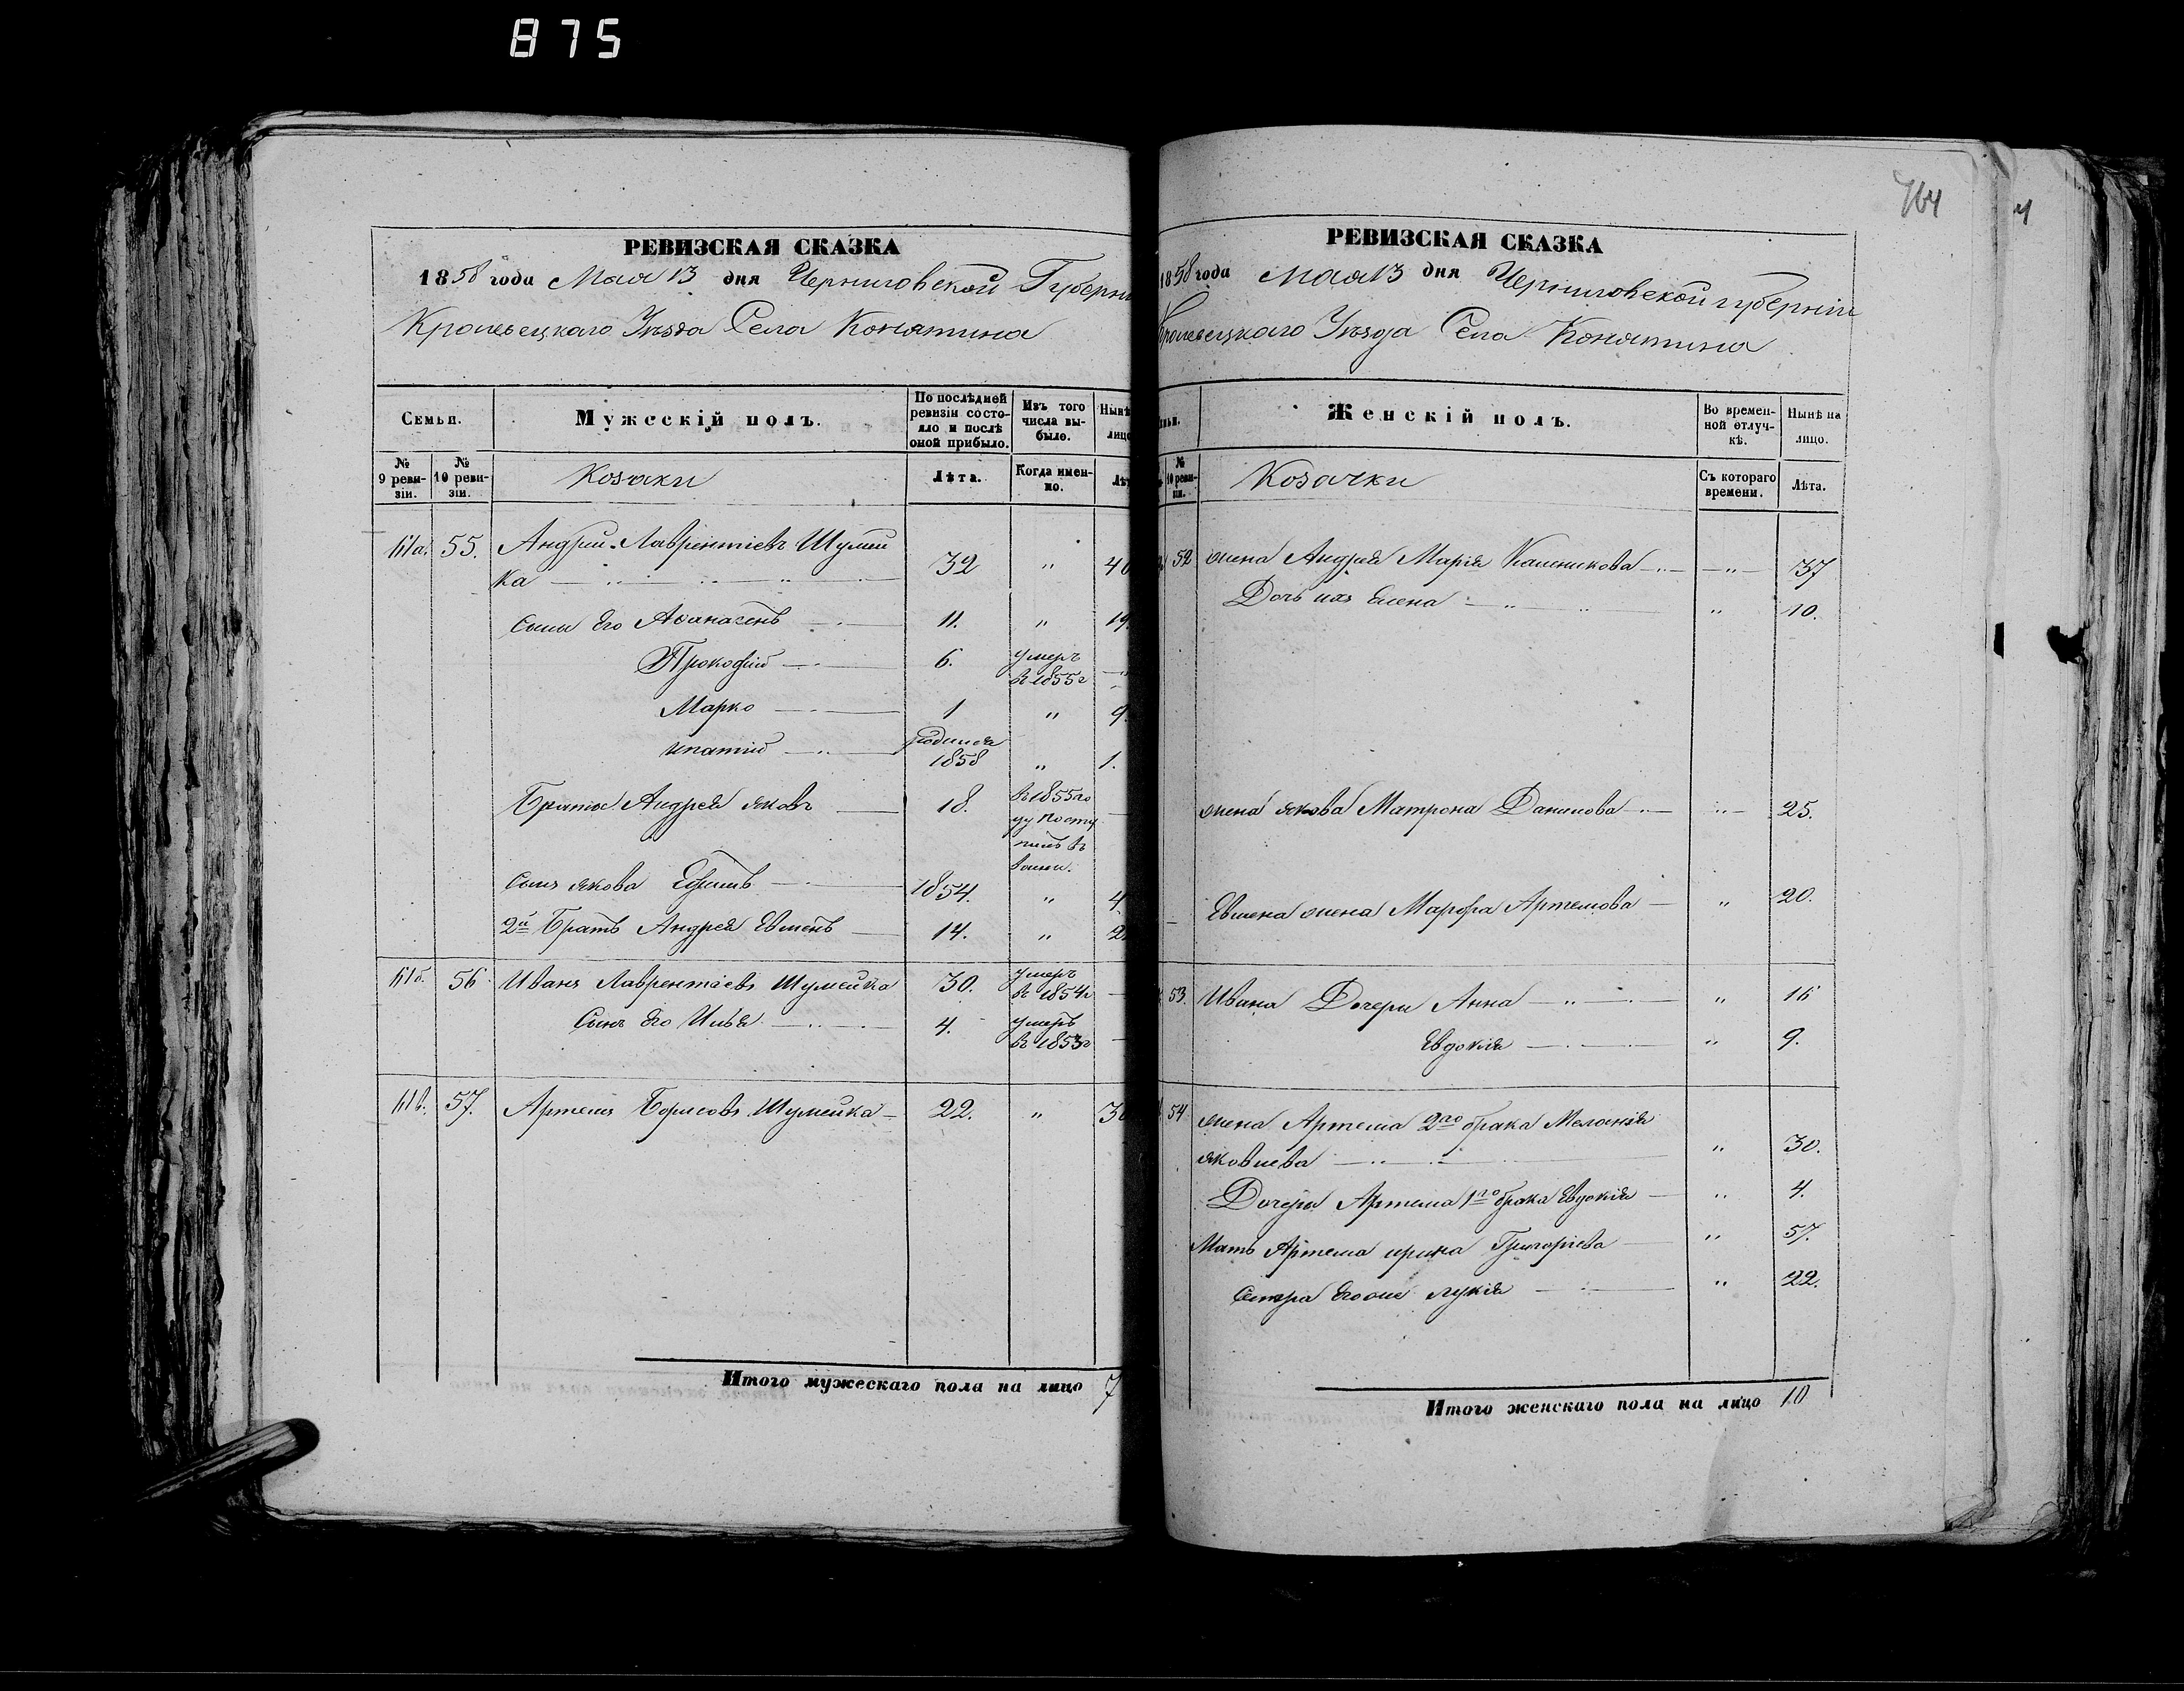 875
РЕВИЗСКАЯ СКАЗКА
1858 года Мая 13 дня Черниговской Губерни
Кролевецкаго Уѣзда Села Конятина
Семьи.
Мужескій полъ.
По послѣдней ревизіи состояло и послѣ оной прибыло.
Изъ того числа выбыло.
Нынѣ лицо
№ 9 ревизіи.
№ 10 ревизіи.
Козаки
Лѣта.
Когда именно.
Лѣт
61а. 55. Андрей Лаврентіевъ Шумей
ка 32 " 40
Сыны Его Афанасей 11. " 19.
Прокофій 6. умеръ в 1855г
Марко 1 " 9
Ипатій родился 1858 " 1.
Братъ Андрея Яковъ 18. в 1855 го
ду посту
пилъ въ
воины.
Сынъ Якова Ефимъ 1854. " 4
2й Братъ Андрея Евменъ 14. " 2
61б. 56 Иванъ Лаврентіевъ Шумейка 30. умеръ в 1854г
Сынъ Его Илья 4. умеръ в 1853г
61в. 57. Артемъ Борисовъ Шумейка 22. " 30
Итого мужескаго пола на лицо 7
764
РЕВИЗСКАЯ СКАЗКА
1858 года Мая 13 дня Черниговской губерніи
Кролевецкаго Уѣзда Села Конятина
Женскій полъ.
Во временной отлучкѣ.
Нынѣ на лицо.
№ 10 ревизіи.
Козачки
Съ котораго времени.
Лѣта.
52 жена Андрея Марія " 37
Дочь ихъ Елена " 10.
жена Якова Матрона Данилова " 25.
Евмена жена Марфа Артемова " 20.
53. Ивана Дочери Анна " 16
Евдокія " 9.
54 жена Артема 2го брака Меланія
Яковлева " 30.
Дочери Артема 1го брака Евдокія " 4.
Мать Артема Ирина Григоріева " 57.
Сестра Его же Лукія " 22.
Итого женскаго пола на лицо 10